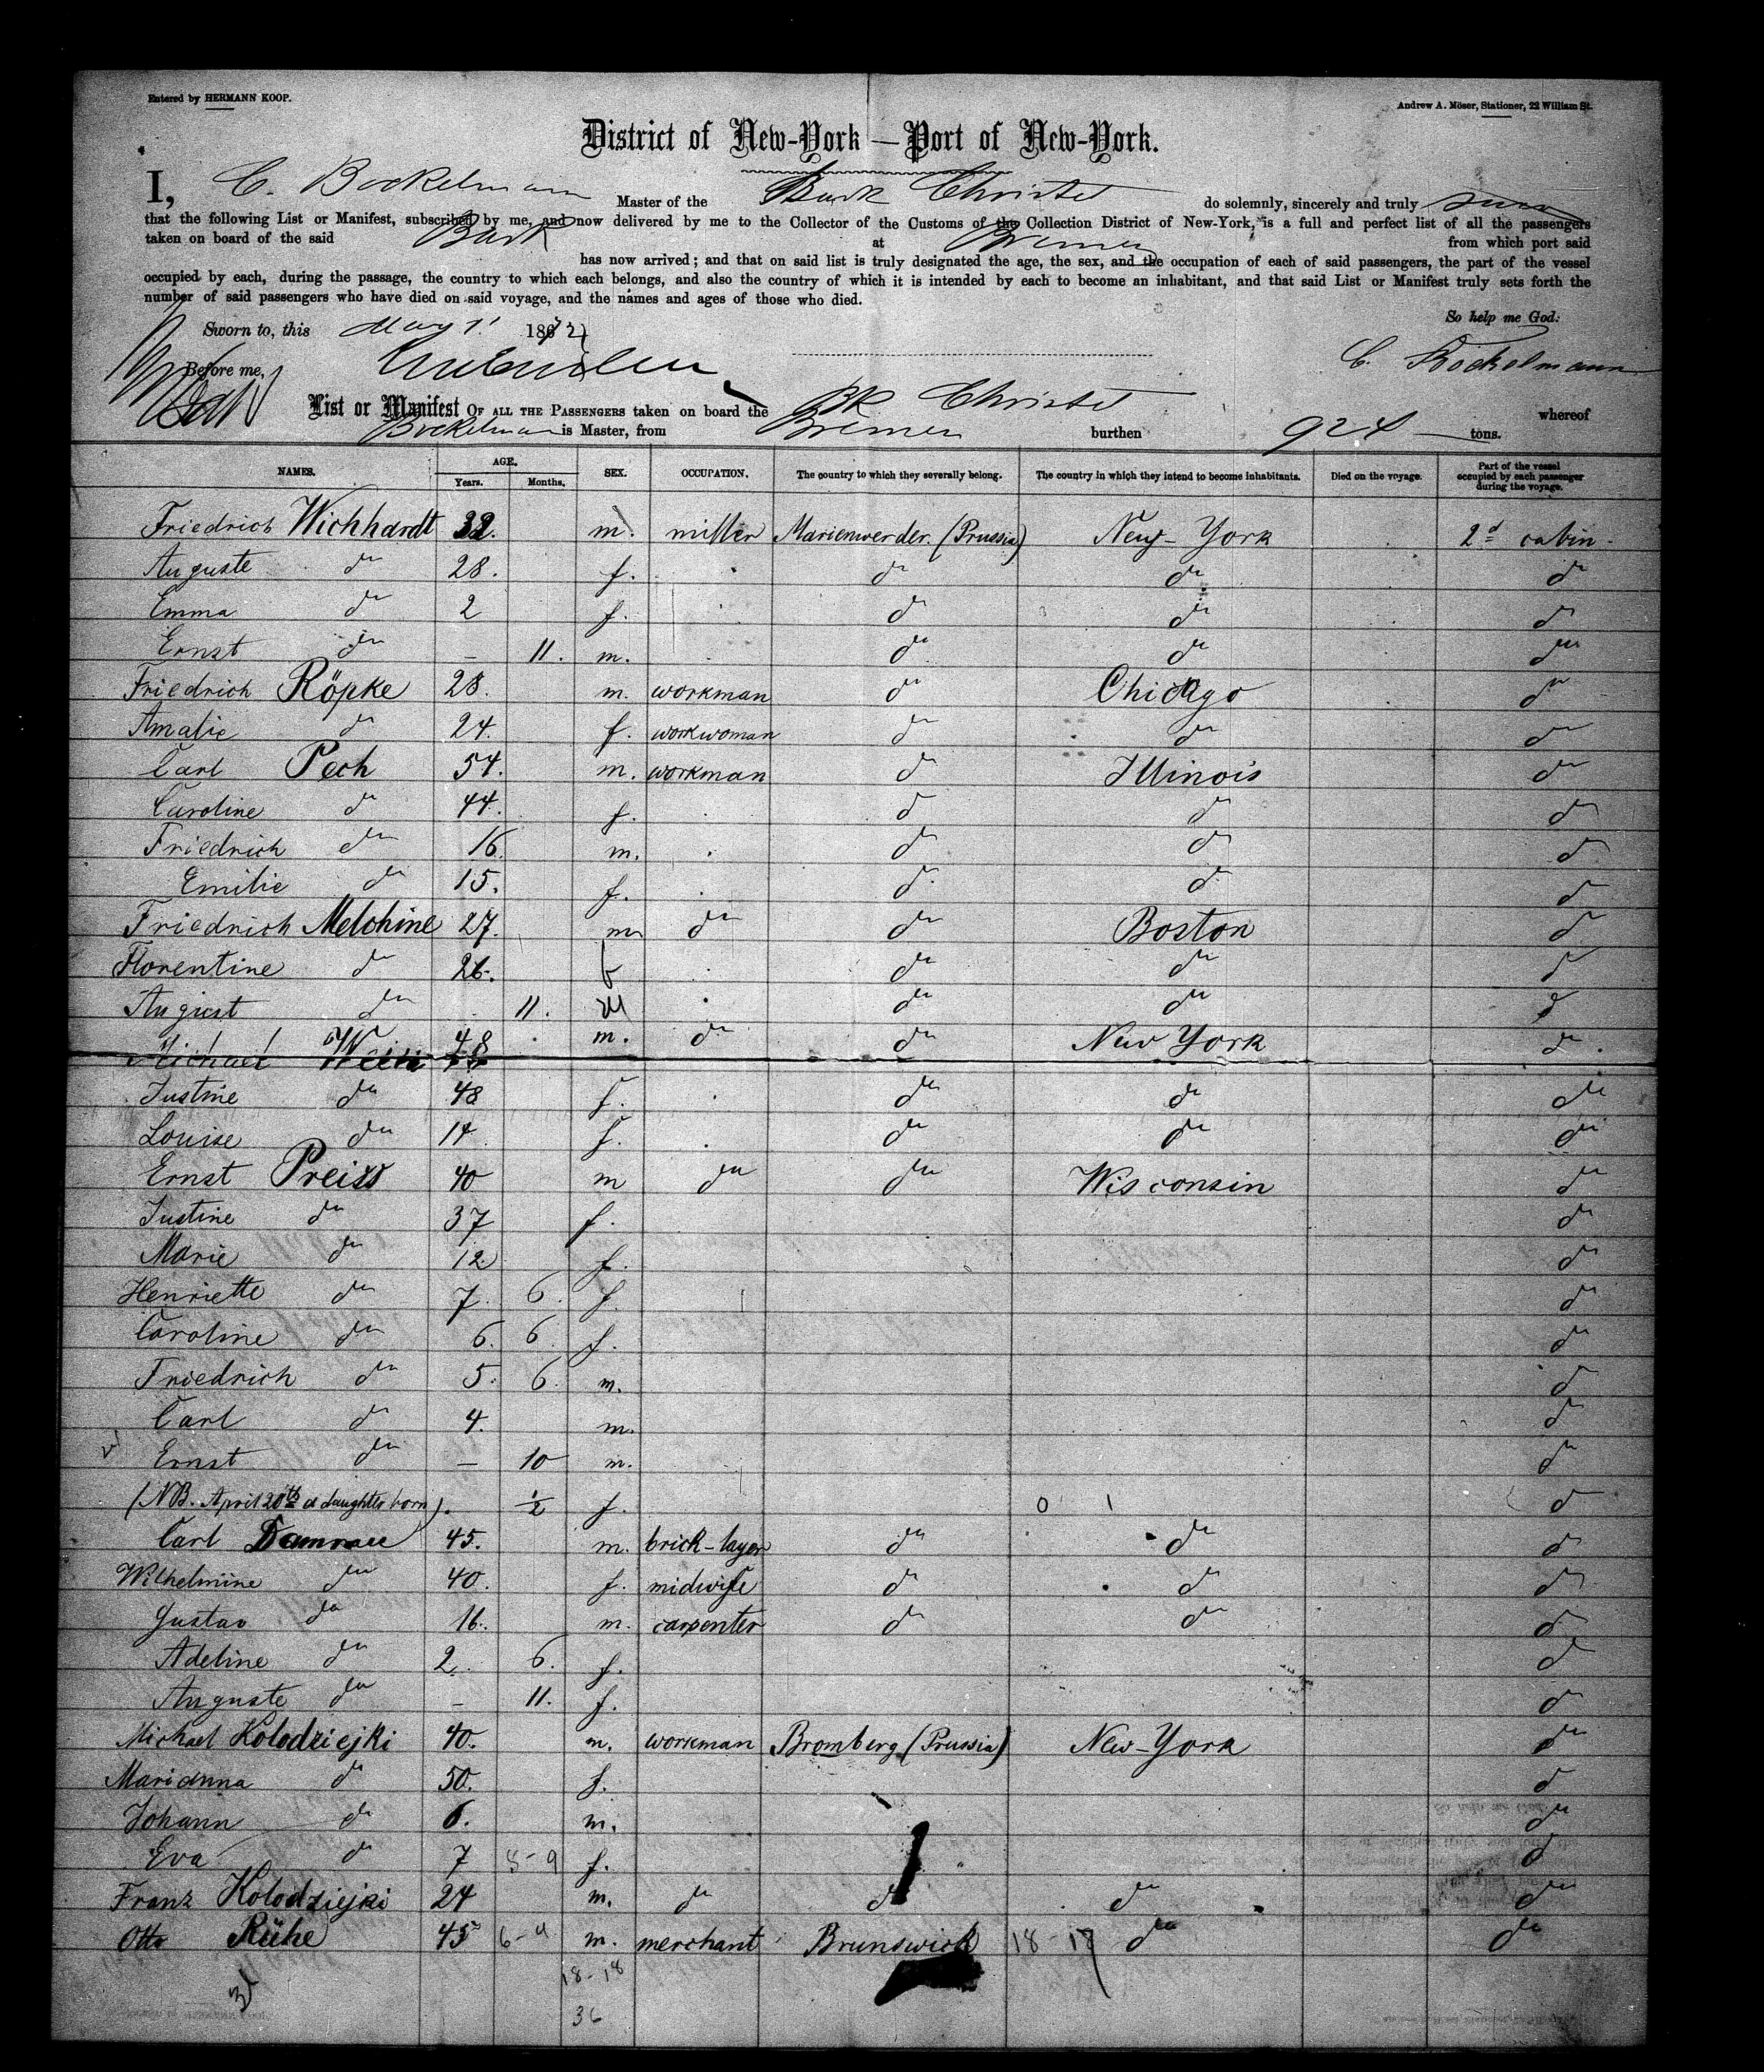 Entered by HERMANN KOOP.
Andrew A. Möser, Stationer, 22 William St.
District of New-York — Port of New-York.
I, C. Bockelmann Master of the Bark Christel do solemnly, sincerely and truly swear
that the following List or Manifest, subscribed by me, and now delivered by me to the Collector of the Customs of the Collection District of New-York, is a full and perfect list of all the passengers
taken on board of the said Bark at Bremen from which port said
has now arrived; and that on said list is truly designated the age, the sex, and the occupation of each of said passengers, the part of the vessel
occupied by each, during the passage, the country to which each belongs, and also the country of which it is intended by each to become an inhabitant, and that said List or Manifest truly sets forth the
number of said passengers who have died on said voyage, and the names and ages of those who died.
So help me God:
Sworn to, this May 1' 187
Before me, C. Bockelmann
List or Manifest OF ALL THE PASSENGERS taken on board the Bk Christel whereof
Bockelman is Master, from Bremen burthen 924 tons.
NAMES. AGE. Years. Months. SEX. OCCUPATION. The country to which they severally belong. The country in which they intend to become inhabitants. Died on the voyage. Part of the vessel occupied by each passenger during the voyage.
Friedrich Wichhardt 32. m. miller Marienwerder. (Prussia) New-York 2d cabin.
Auguste do 28. f. do do do
Emma do 2 f. do do do
Ernst do — 11. m. do do do
Friedrich Röpke 28. m. workman do Chicago do
Amalie do 24. f. workwoman do do do
Carl Pech 54. m. workman do Illinois do
Caroline do 44. f. do do do
Friedrich do 16. m. do do do
Emilie do 15. f. do do do
Friedrich Melchine 27. m do do Boston do
Florentine do 26. f do do do
August do 11. M do do do
Michael 48 m. do do New York do.
Justine do 48 f. do do do
Louise do 14. f. do do do
Ernst Preiss 40 m do do Wisconsin do
Justine do 37 f. do
Marie do 12 f. do
Henriette do 7. 6. f. do
Caroline do 6. 6. f. do
Friedrich do 5. 6. m. do
Carl do 4. m. do
Ernst do — 10 m. do
(NB. April 20th a daughter born). 1/2 f. do
Carl Damrau 45. m. brick-layer do do do
Wilhelmine do 40. f. midwife do do do
Gustav do 16. m. carpenter do do do
Adeline do 2. 6. f. do
Auguste do — 11. f. do
Michael Kolodziejki 40. m. workman Bromberg (Prussia) New-York do
Marianna do 50. f. do
Johann do 6. m. do
Eva do 7 8-9 f. do
Franz Kolodziejki 24 m. do do do do
Otto Rühe 45 6-9 m. merchant Brunswick 18-18 do do
18-18
36